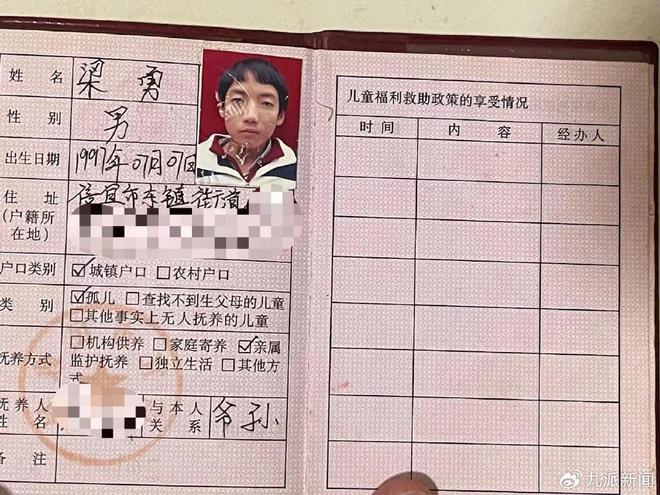 姓名 梁勇
性别 男
出生日期 1997年07月07日
住址 信宜市东镇街道
(户籍所
在地)
户口类别 ☑城镇户口 □农村户口
类别 ☑孤儿 □查找不到生父母的儿童
□其他事实上无人抚养的儿童
抚养方式 □机构供养 □家庭寄养 ☑亲属
监护抚养 □独立生活 □其他方
式
抚养人
姓名
与本人
关系
爷孙
备注
儿童福利救助政策的享受情况
时间 内容 经办人
九派新闻